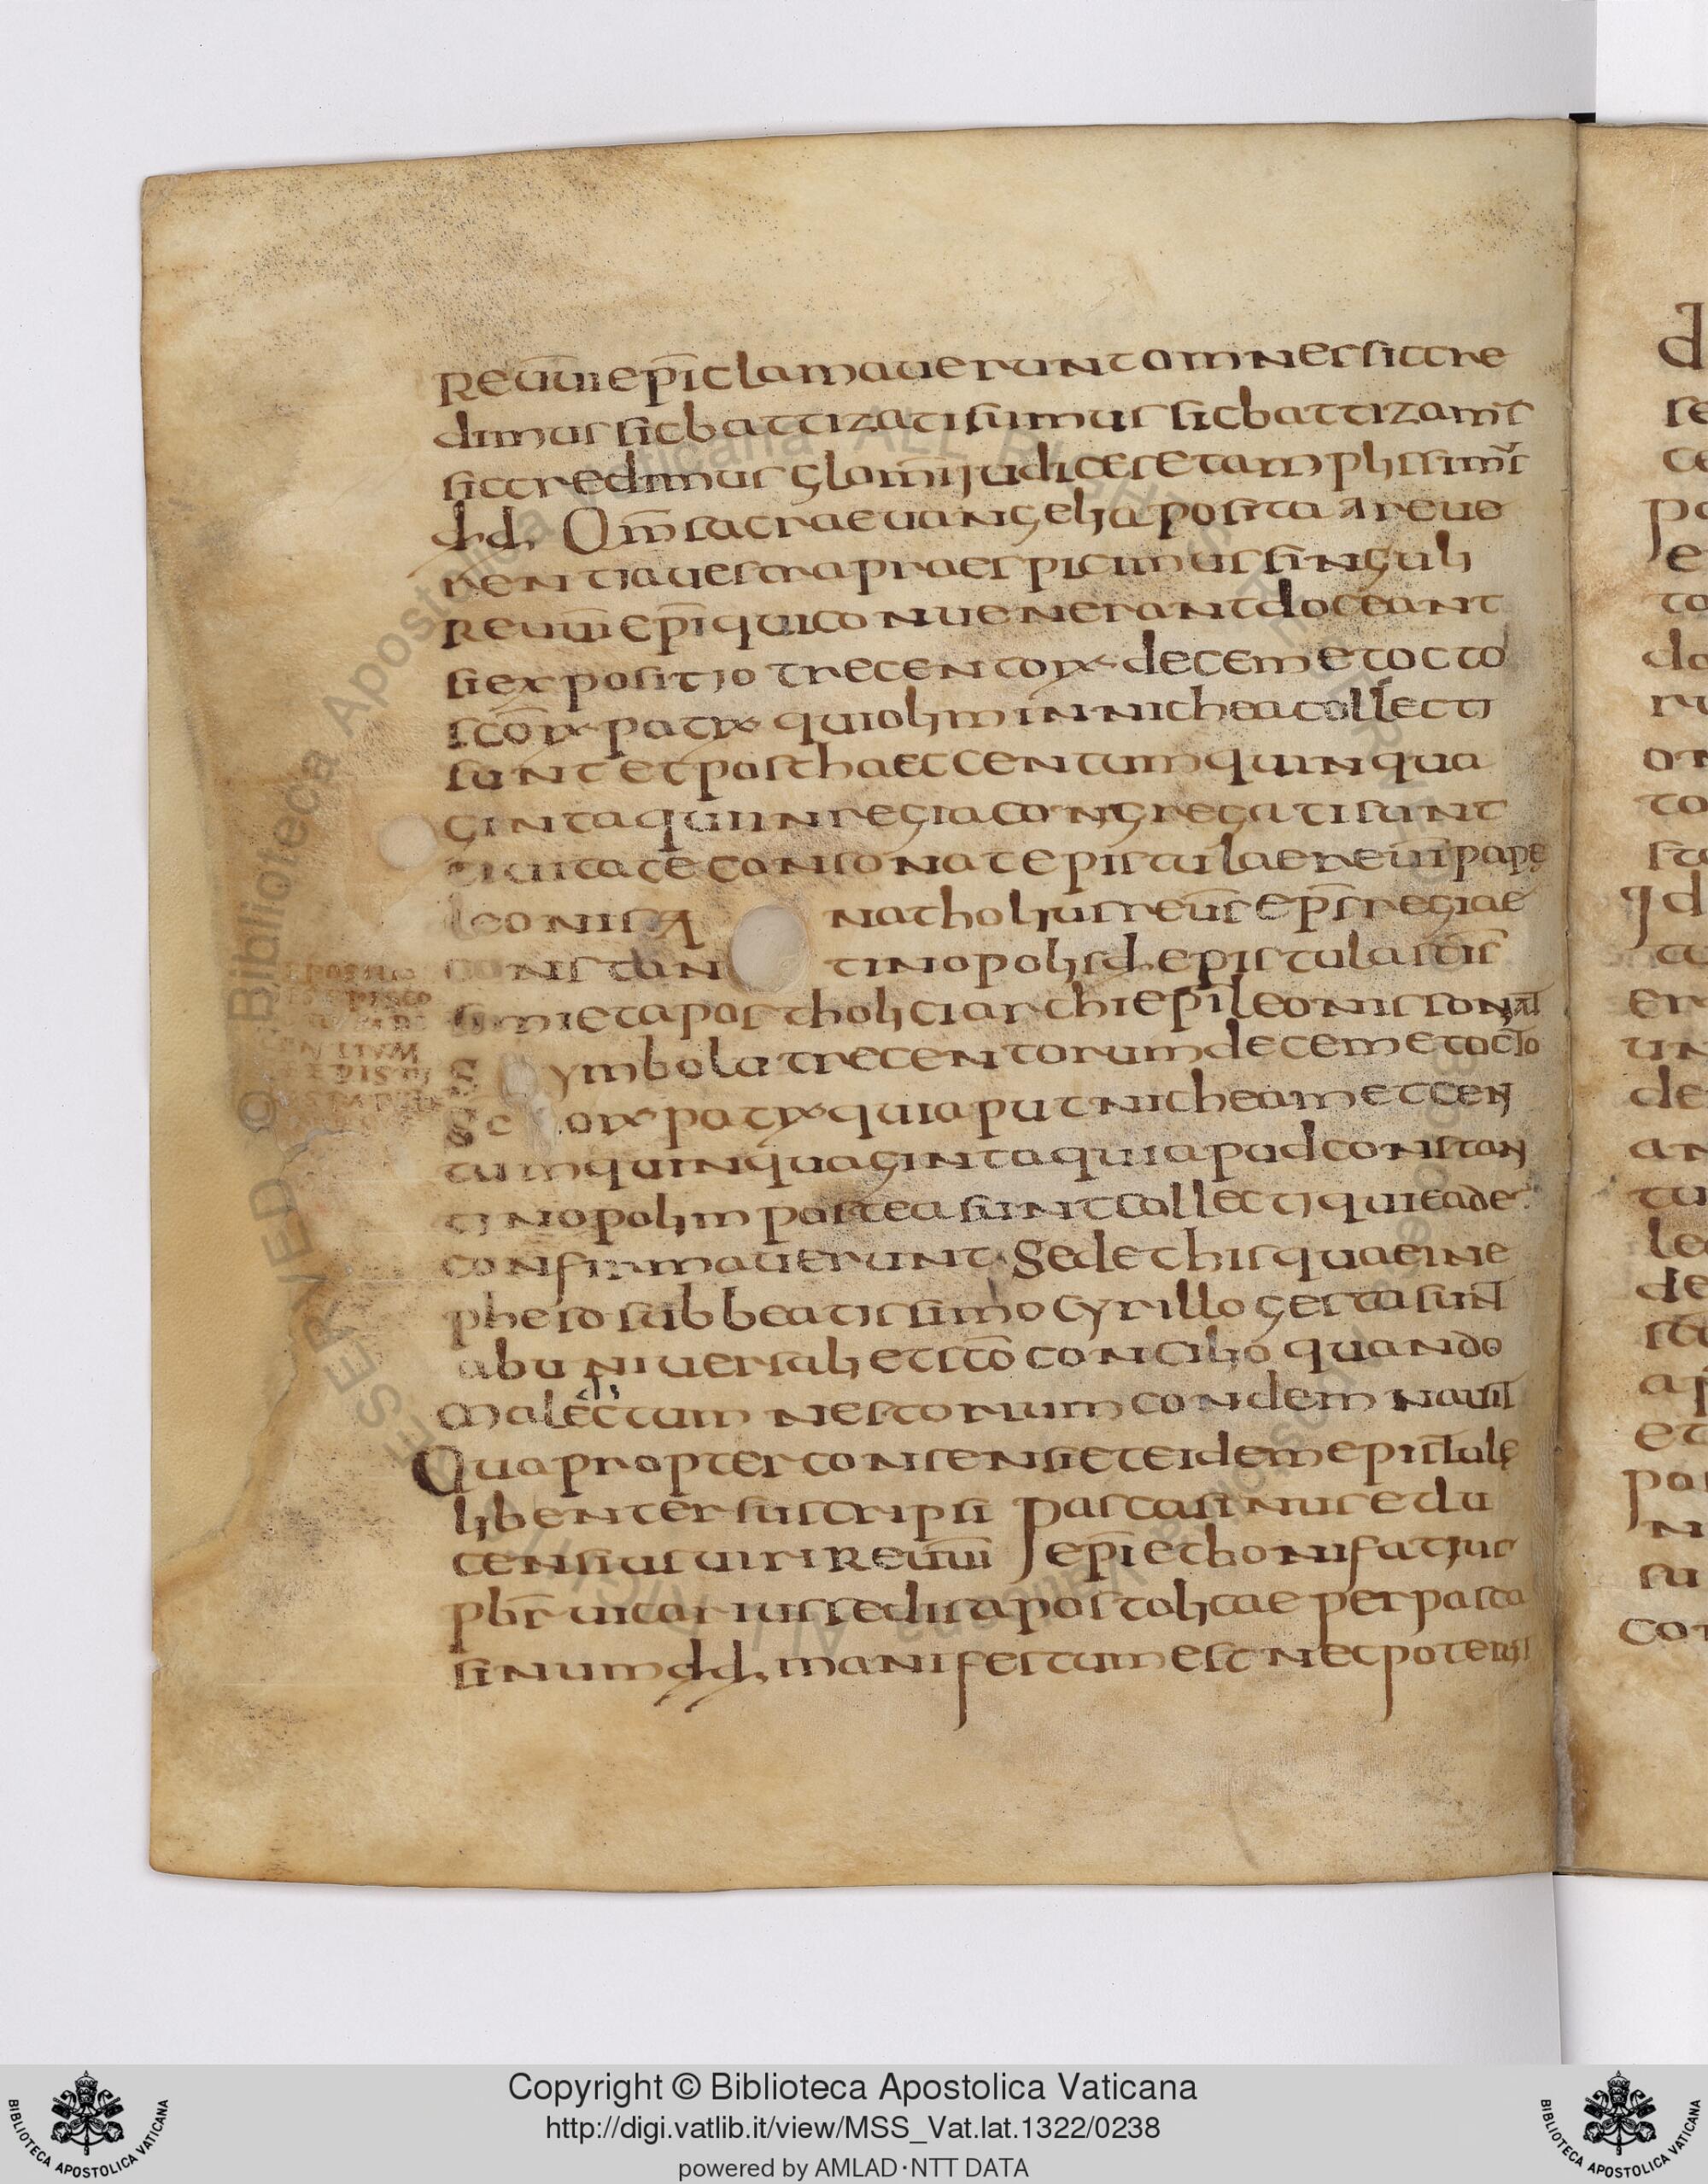 reum̄i ep̄i clamaverunt omnes sic cre
dimus sic battizati sumus sic battizam̄s
sic credimus gloriosi judices et amplissim̄s
dd. Qm̄ sacra evangelia posita a reve
rentia vestra praespicimus singuli
reum̄i ep̄i qui convenerant doceant
si expositio trecentor decem et octo
scōr patr qui olim in nichea collecti
sunt et post haec centum quinqua
ginta qui in regia congregati sunt
civitate consonat epistulae reum̄i pape
leonis A natholius reus̄ ep̄s regiae
constan tinopolis d. epistula scis̄
simi et apostholici archiep̄i leonis sonat
s ymbola trecentorum decem et octo
sc or patr qui aput nicheam et cen
tum quinquaginta qui apud constan
tinopolim postea sunt collecti qui eade
confirmaverunt. Sed et his quae in e
pheso sub beatissimo cyrillo gesta sunt
ab universali et scō concilio quando
malectum nestorium condemnavit
Quapropter consensi et eidem epistule
libenter suscripsi pascasinus edu
censius viri reum̄i ep̄i et bonifatius
pbr̄ vicarius sedis apostolicae per pasca
sinum dd. manifestum est nec potens
Copyright © Biblioteca Apostolica Vaticana
http://digi.vatlib.it/view/MSS_Vat.lat.1322/0238
powered by AMLAD·NTT DATA
BIBLIOTECA APOSTOLICA VATICANA
BIBLIOTECA APOSTOLICA VATICANA